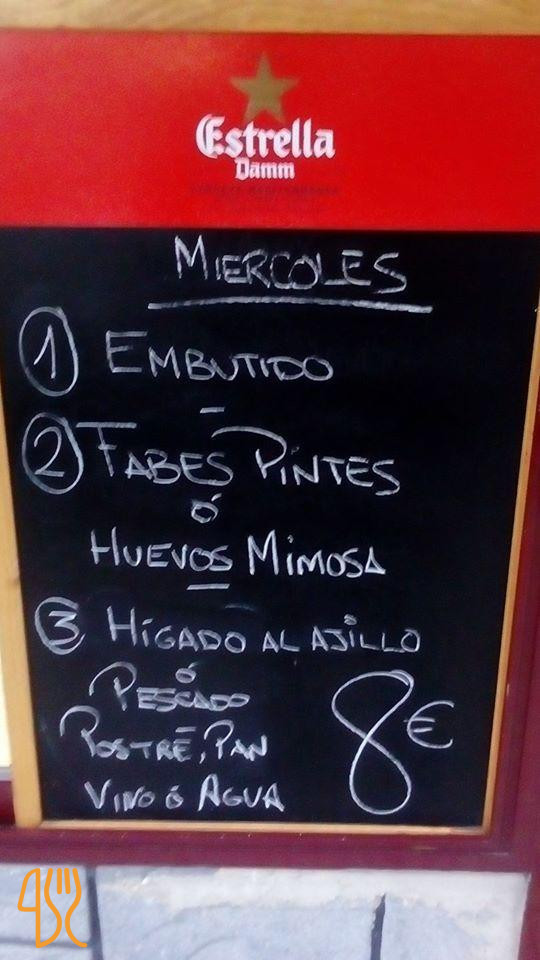 Estrella
Damm
MIERCOLES
1 EMBUTIDO
-
2 FABES PINTES
ó
HUEVOS MIMOSA
-
3 HÍGADO AL AJILLO
ó
PESCADO
POSTRE, PAN
VINO ó AGUA
8€